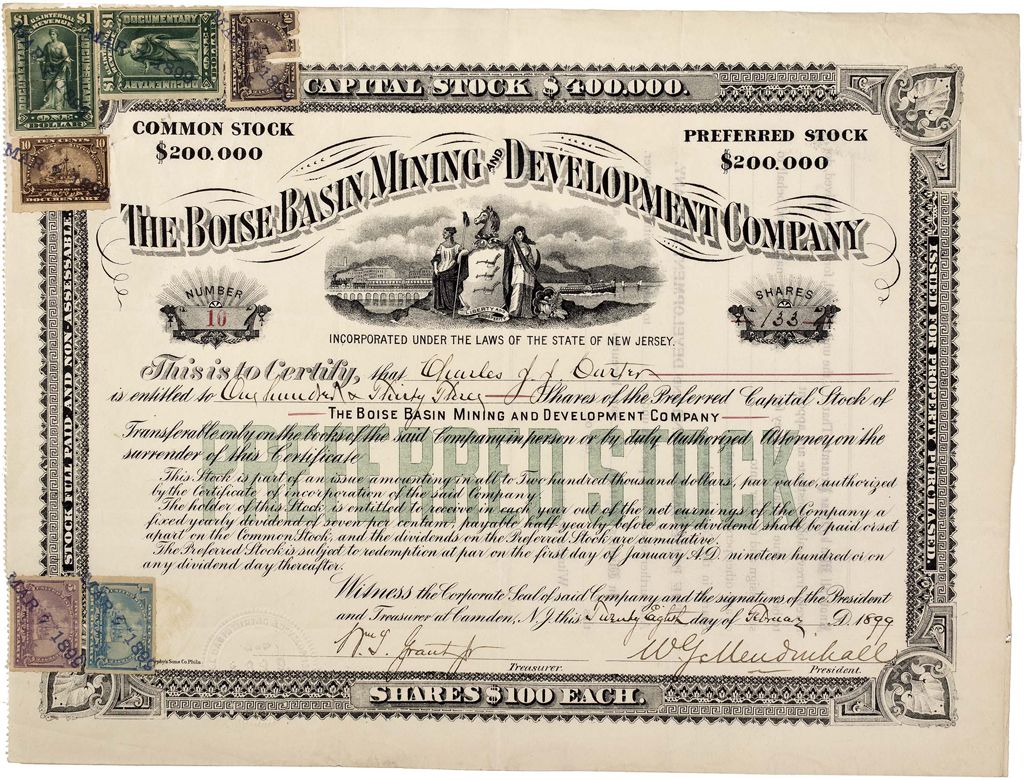 $1 U.S. INTERNAL REVENUE. $1
DOCUMENTARY
DOCUMENTARY
ONE
DOLLAR
$1 DOCUMENTARY
ONE DOLLAR
MAR 1899
10 TEN CENTS 10
DOCUMENTARY
MAR
CAPITAL STOCK $400.000.
COMMON STOCK
$200.000
PREFERRED STOCK
$200.000
THE BOISE BASIN MINING AND DEVELOPMENT COMPANY
NUMBER
10
SHARES
133
INCORPORATED UNDER THE LAWS OF THE STATE OF NEW JERSEY.
This is to Certify, that Charles J. J. Carter
is entitled to One hundred & Thirty Three Shares of the Preferred Capital Stock of
THE BOISE BASIN MINING AND DEVELOPMENT COMPANY
Transferable only on the books of the said Company in person or by duly Authorized Attorney on the
surrender of this Certificate
PREFERRED STOCK
This Stock is part of an issue amounting in all to Two hundred thousand dollars, par value, authorized
by the Certificate of incorporation of the said Company
The holder of this Stock is entitled to receive in each year out of the net earnings of the Company a
fixed yearly dividend of seven per centum, payable half yearly before any dividend shall be paid or set
apart on the Common Stock, and the dividends on the Preferred Stock are cumulative.
The Preferred Stock is subject to redemption at par on the first day of January A.D. nineteen hundred or on
any dividend day thereafter.
Witness the Corporate Seal of said Company and the signatures of the President
and Treasurer at Camden, N.J. this Twenty Eighth day of February D. 1899
Wm. S. Grant Jr
Treasurer.
W G Mendinhall
President.
Murphy's Sons Co. Phila
STOCK FULL PAID AND NON-ASSESSABLE
ISSUED FOR PROPERTY PURCHASED.
MAR 7 1899
MAR 7 1899
SHARES $100 EACH.